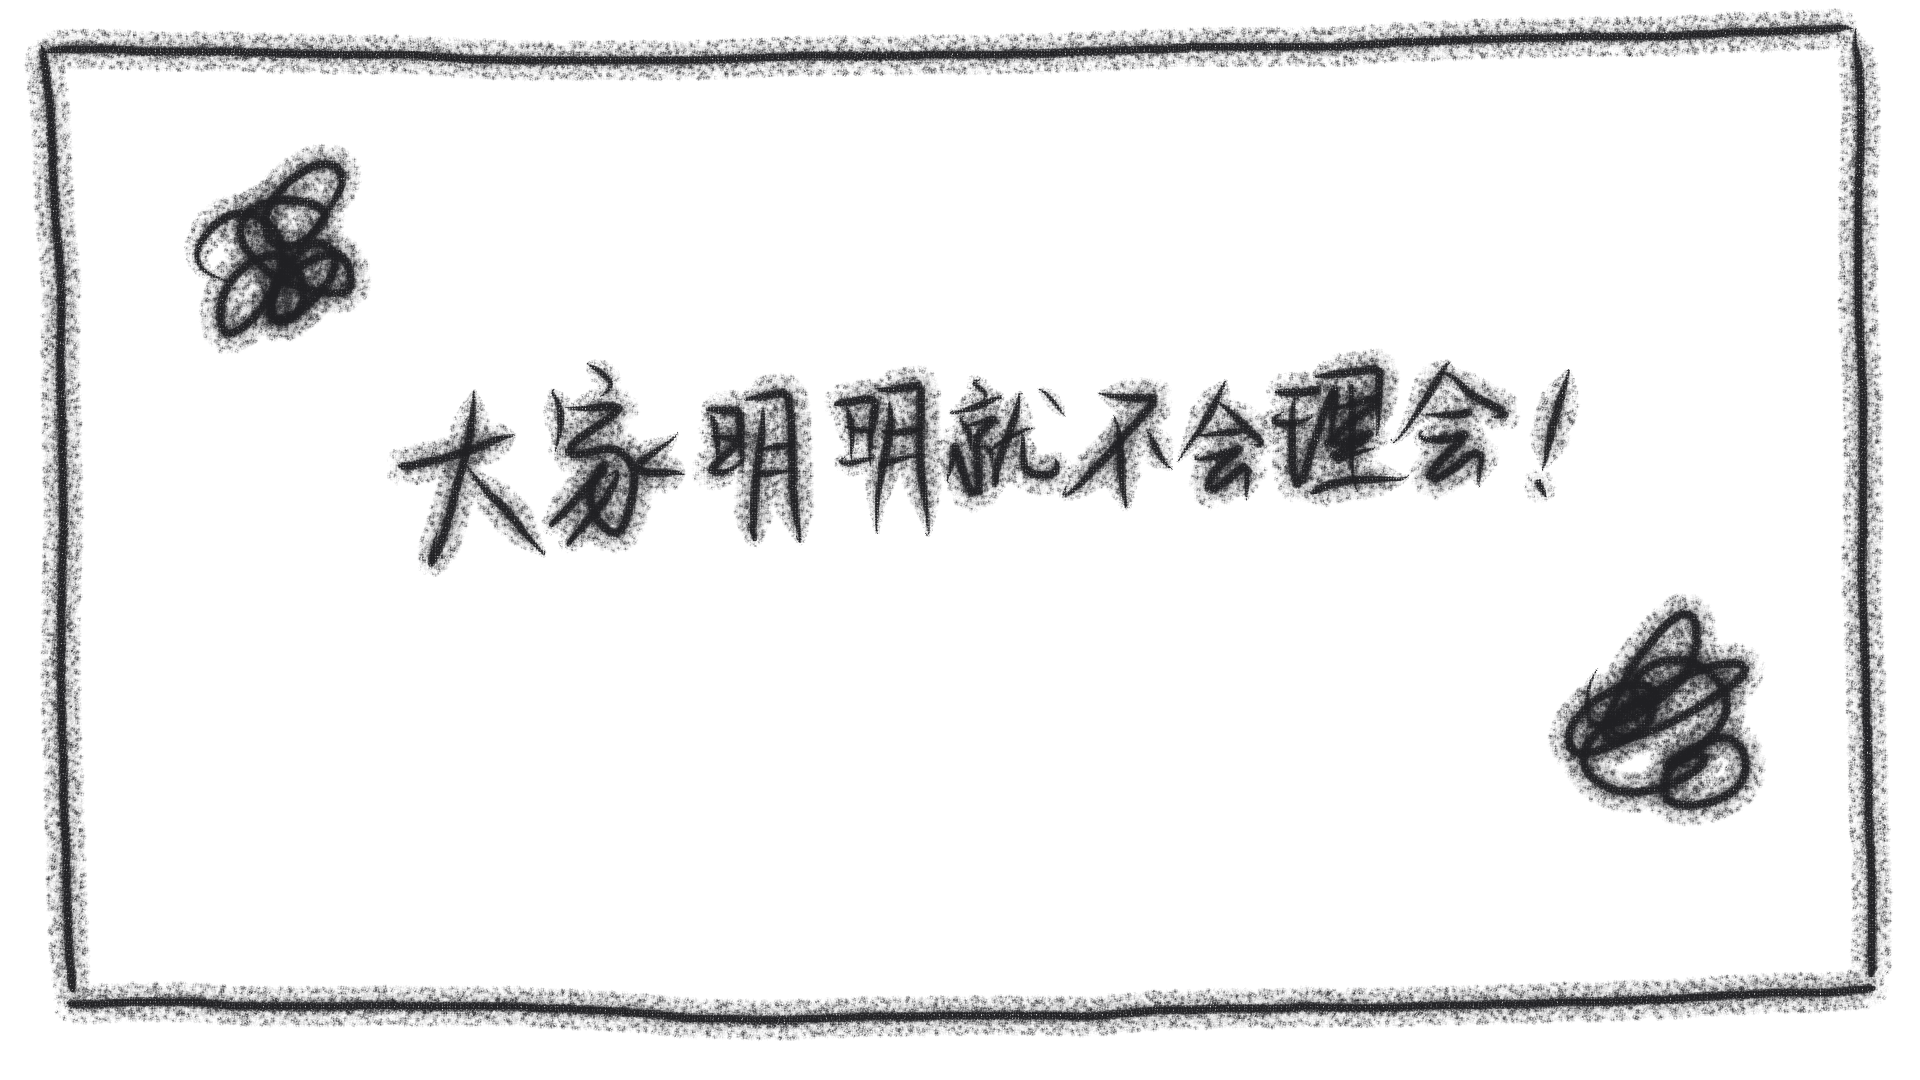 大家明明就不会理会！